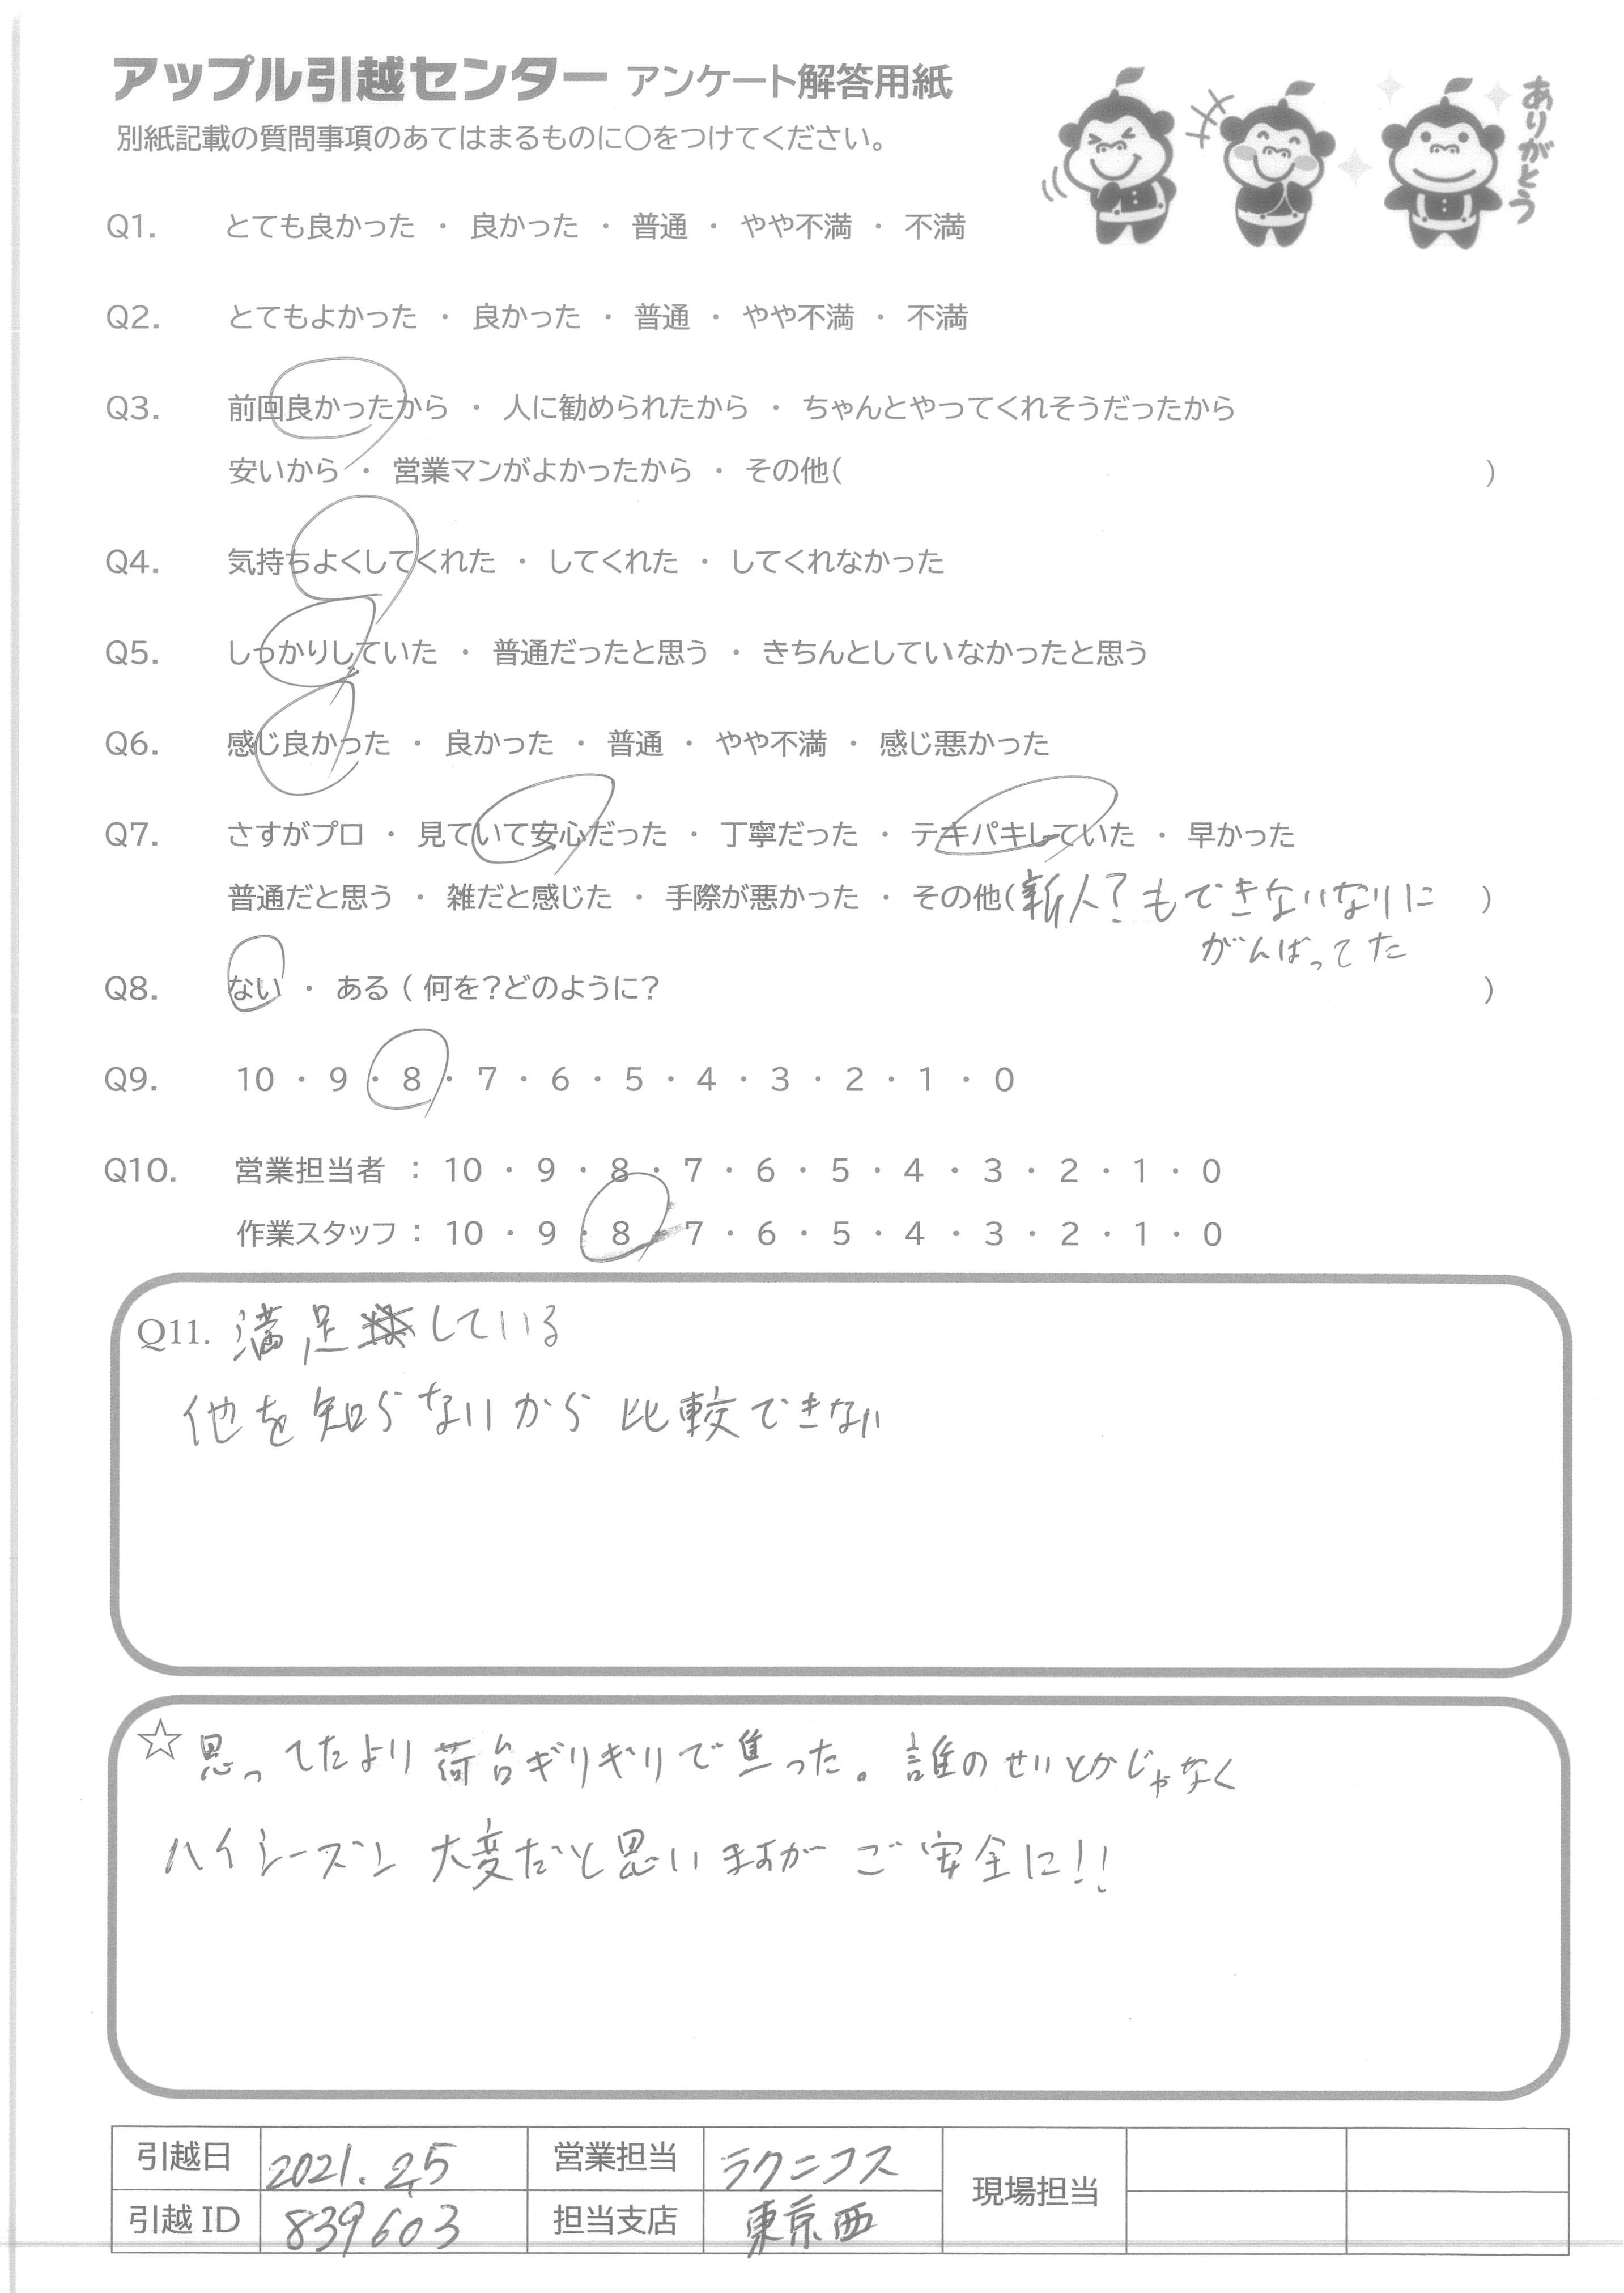 アップル引越センター アンケート解答用紙
別紙記載の質問事項のあてはまるものに○をつけてください。
ありがとう
Q1. とても良かった ・ 良かった ・ 普通 ・ やや不満 ・ 不満
Q2. とてもよかった ・ 良かった ・ 普通 ・ やや不満 ・ 不満
Q3. 前回良かったから ・ 人に勧められたから ・ ちゃんとやってくれそうだったから
安いから ・ 営業マンがよかったから ・ その他( )
Q4. 気持ちよくしてくれた ・ してくれた ・ してくれなかった
Q5. しっかりしていた ・ 普通だったと思う ・ きちんとしていなかったと思う
Q6. 感じ良かった ・ 良かった ・ 普通 ・ やや不満 ・ 感じ悪かった
Q7. さすがプロ ・ 見ていて安心だった ・ 丁寧だった ・ テキパキしていた ・ 早かった
普通だと思う ・ 雑だと感じた ・ 手際が悪かった ・ その他(新人?もできないなりに )
がんばってた
Q8. ない ・ ある ( 何を?どのように? )
Q9. 10 ・ 9 ・ 8 ・ 7 ・ 6 ・ 5 ・ 4 ・ 3 ・ 2 ・ 1 ・ 0
Q10. 営業担当者 : 10 ・ 9 ・ 8 ・ 7 ・ 6 ・ 5 ・ 4 ・ 3 ・ 2 ・ 1 ・ 0
作業スタッフ : 10 ・ 9 ・ 8 ・ 7 ・ 6 ・ 5 ・ 4 ・ 3 ・ 2 ・ 1 ・ 0
Q11. 満足している
他を知らないから比較できない
☆ 思ってたより荷台ギリギリで焦った。誰のせいとかじゃなく
ハイシーズン 大変だと思いますが ご安全に!!
引越日 2021. 25 営業担当 ラクニコス 現場担当
引越 ID 839603 担当支店 東京西